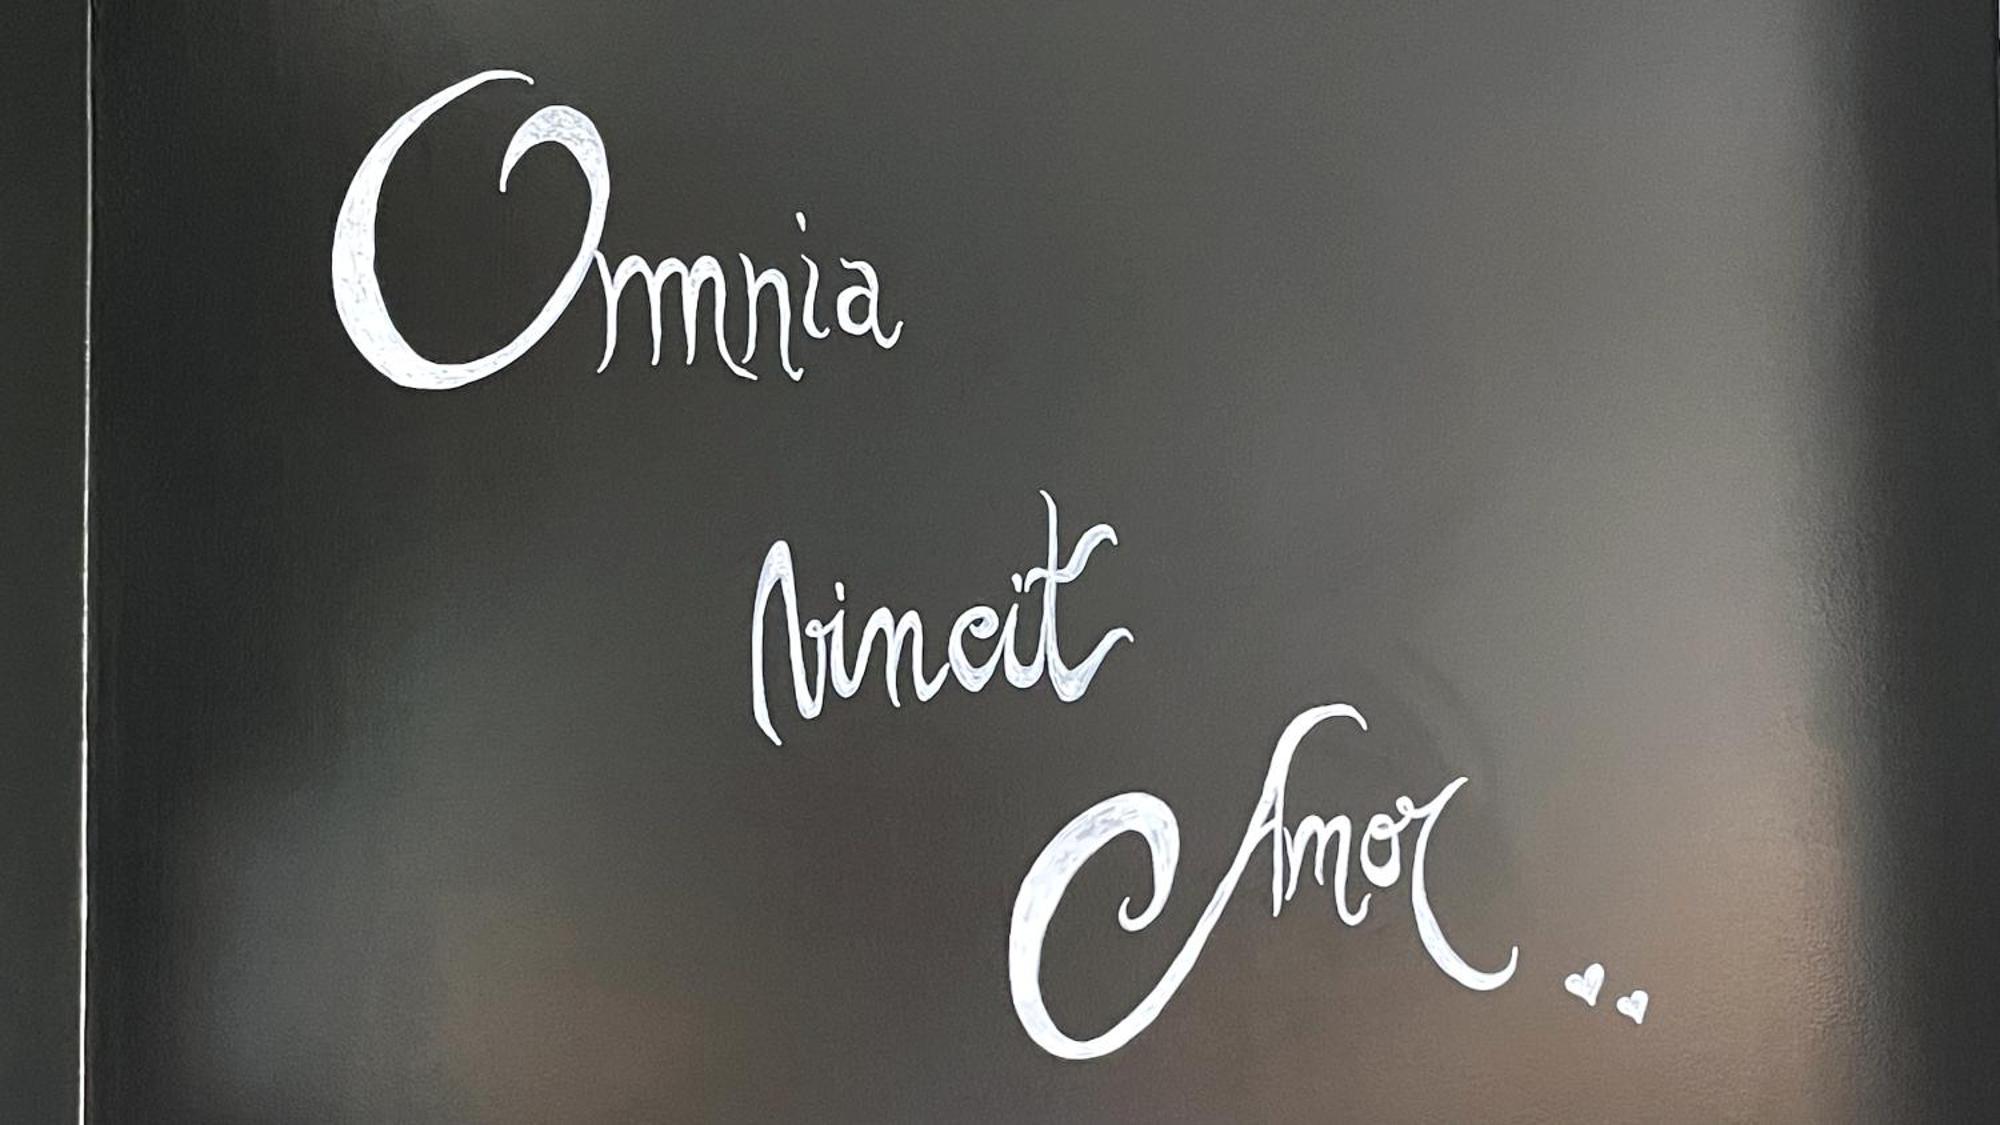 Omnia
vincit
Amor